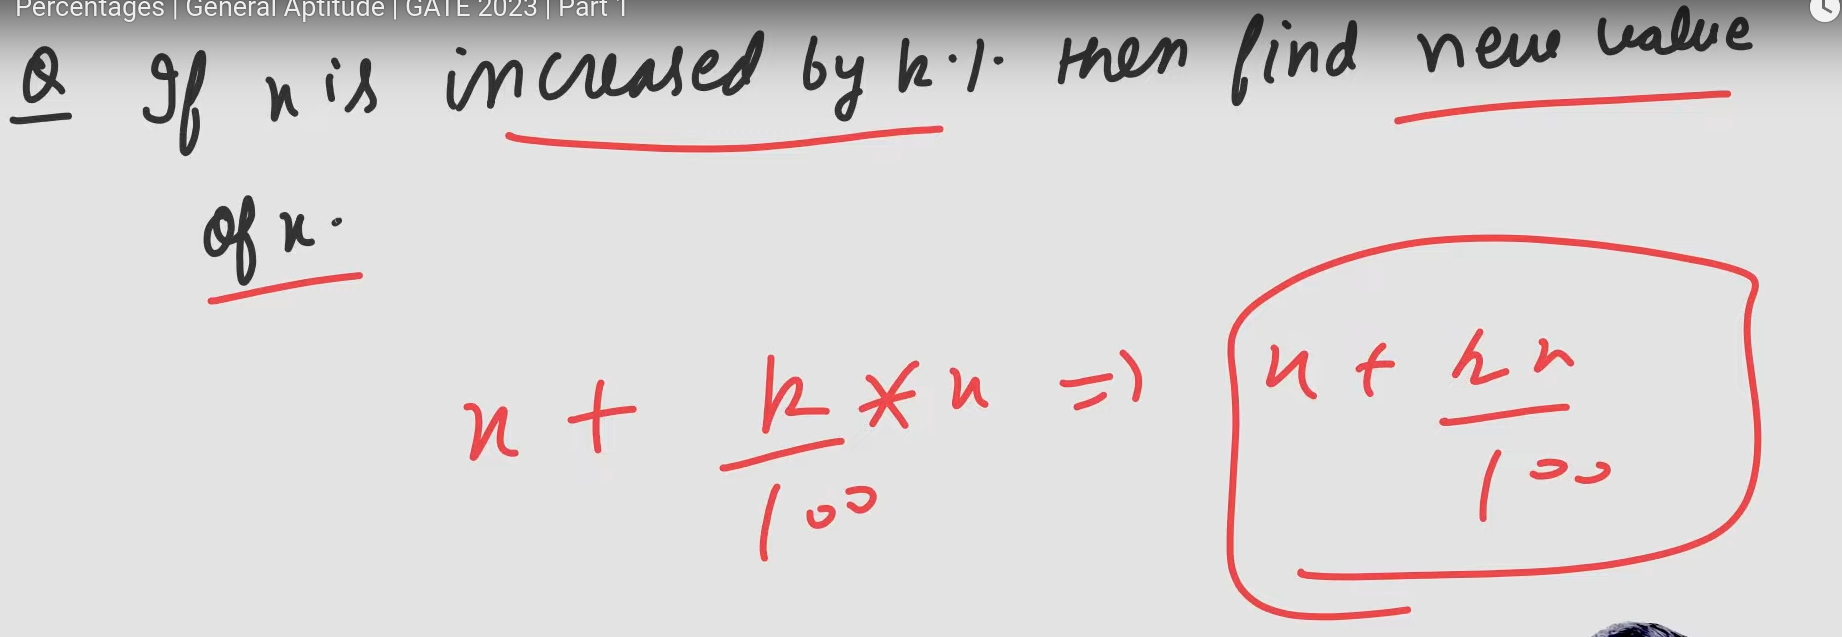 Percentages | General Aptitude | GATE 2023 | Part 1
Q If x is increased by k% then find new value
of x.
x + k/100 * x => x + kx/100